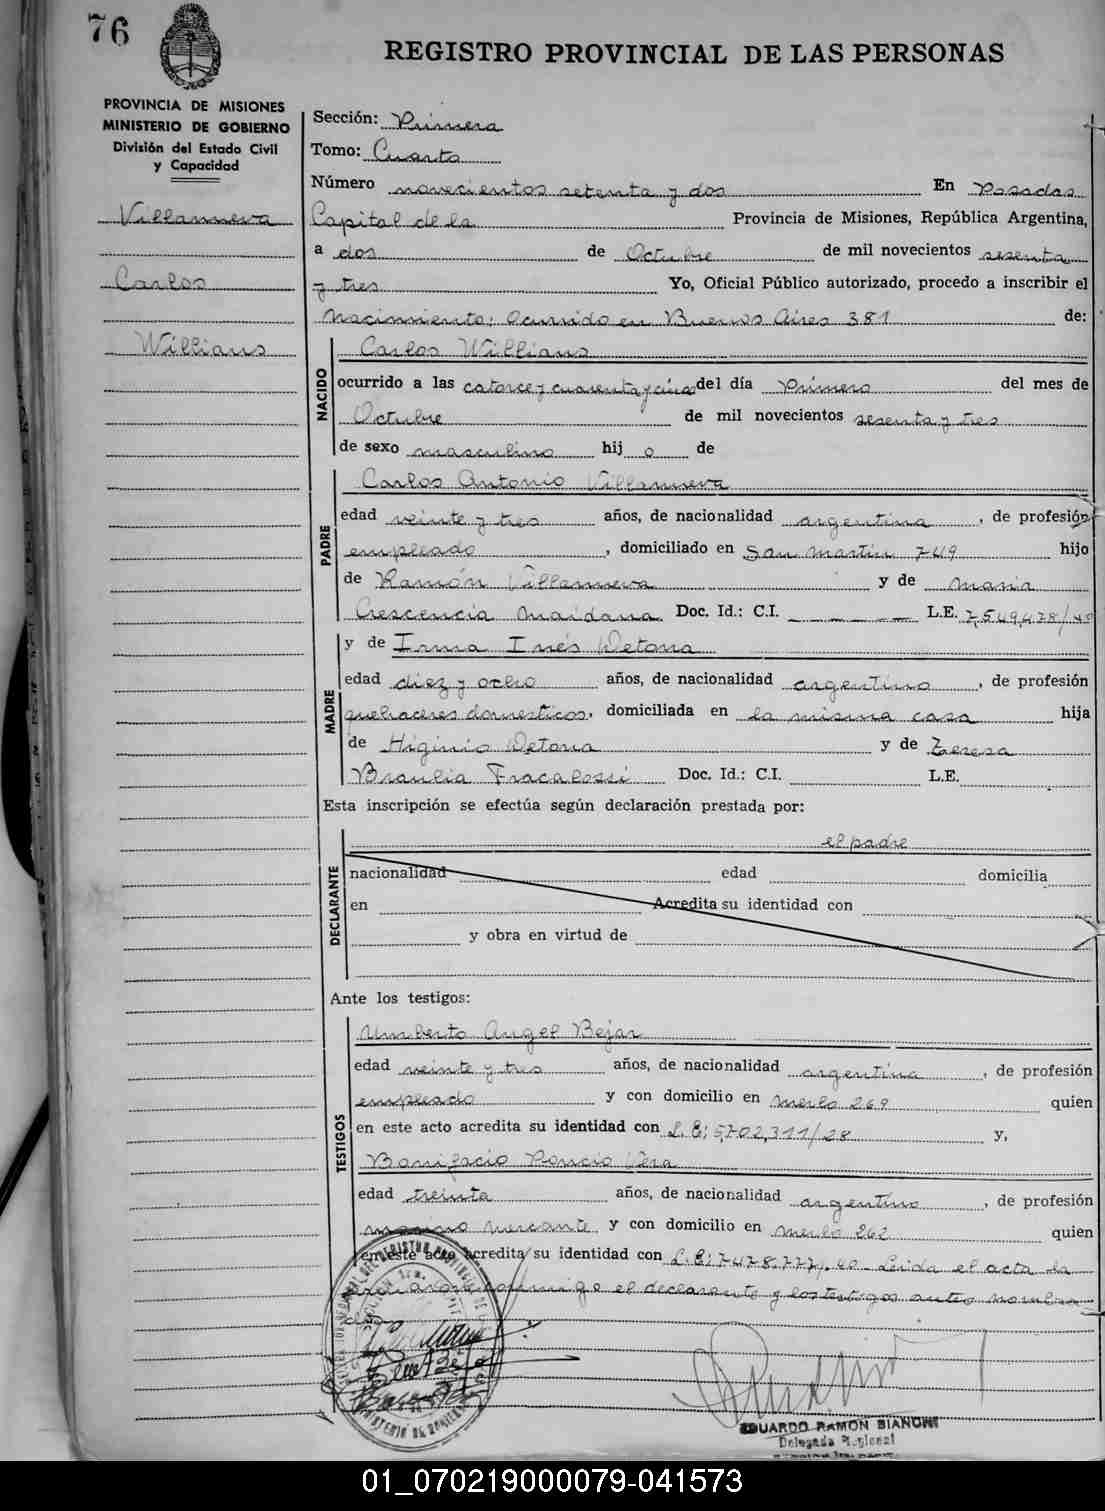 76
REGISTRO PROVINCIAL DE LAS PERSONAS
PROVINCIA DE MISIONES
MINISTERIO DE GOBIERNO
División del Estado Civil
y Capacidad
Villanueva
Carlos
Willians
Sección: Primera
Tomo: Cuarto
Número novecientos setenta y dos En Posadas
Capital de la Provincia de Misiones, República Argentina,
a dos de Octubre de mil novecientos sesenta
y tres Yo, Oficial Público autorizado, procedo a inscribir el
Nacimiento: ocurrido en Buenos Aires 381 de:
NACIDO
Carlos Willians
ocurrido a las catorce y cuarenta y cinco del día Primero del mes de
Octubre de mil novecientos sesenta y tres
de sexo masculino hij o de
PADRE
Carlos Antonio Villanueva
edad veinte y tres años, de nacionalidad argentina, de profesión
empleado, domiciliado en San Martín 749 hijo
de Ramón Villanueva y de Maria
Crescencia Maidana Doc. Id.: C.I. L.E. 7,549,478/40
MADRE
y de Irma Inés Detona
edad diez y ocho años, de nacionalidad argentino, de profesión
quehaceres domesticos, domiciliada en la misma casa hija
de Higinio Detona y de Teresa
Braulia Fracalossi Doc. Id.: C.I. L.E.
Esta inscripción se efectúa según declaración prestada por:
DECLARANTE
el padre
nacionalidad edad domicilia
en Acredita su identidad con
y obra en virtud de
Ante los testigos:
TESTIGOS
Umberto Angel Bejar
edad veinte y tres años, de nacionalidad argentina, de profesión
empleado y con domicilio en Merlo 269 quien
en este acto acredita su identidad con L.E; 5,702,311/28 y,
Bonifacio Poncio Vera
edad treinta años, de nacionalidad argentino, de profesión
marino mercante y con domicilio en Merlo 262 quien
en este acto acredita su identidad con L.E; 7478.777/40 Leida el acta la
conmigo el declarante y los testigos antes nombra
dos
EDUARDO RAMON BIANCHI
Delegado Regional
01_070219000079-041573